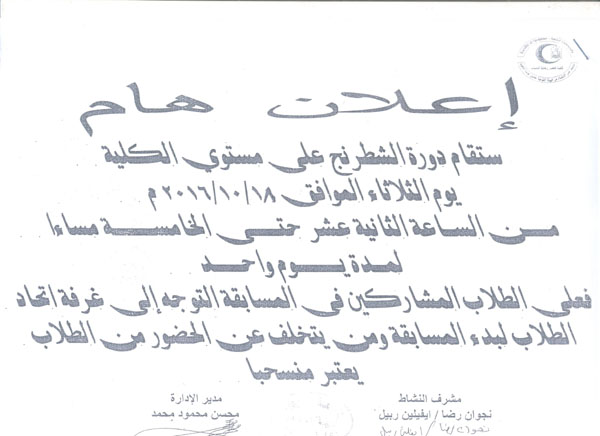 إعلان هام
ستقام دورة الشطرنج على مستوي الكلية
يوم الثلاثاء الموافق ٢٠١٦/١٠/١٨ م
من الساعة الثانية عشر حتى الخامسة مساءا
لمدة يوم واحد
فعلى الطلاب المشاركين فى المسابقة التوجه إلى غرفة اتحاد
الطلاب لبدء المسابقة ومن يتخلف عن الحضور من الطلاب
يعتبر منسحبا
مشرف النشاط
نجوان رضا / ايفيلين ربيل
نجوان رضا /
مدير الإدارة
محسن محمود محمد